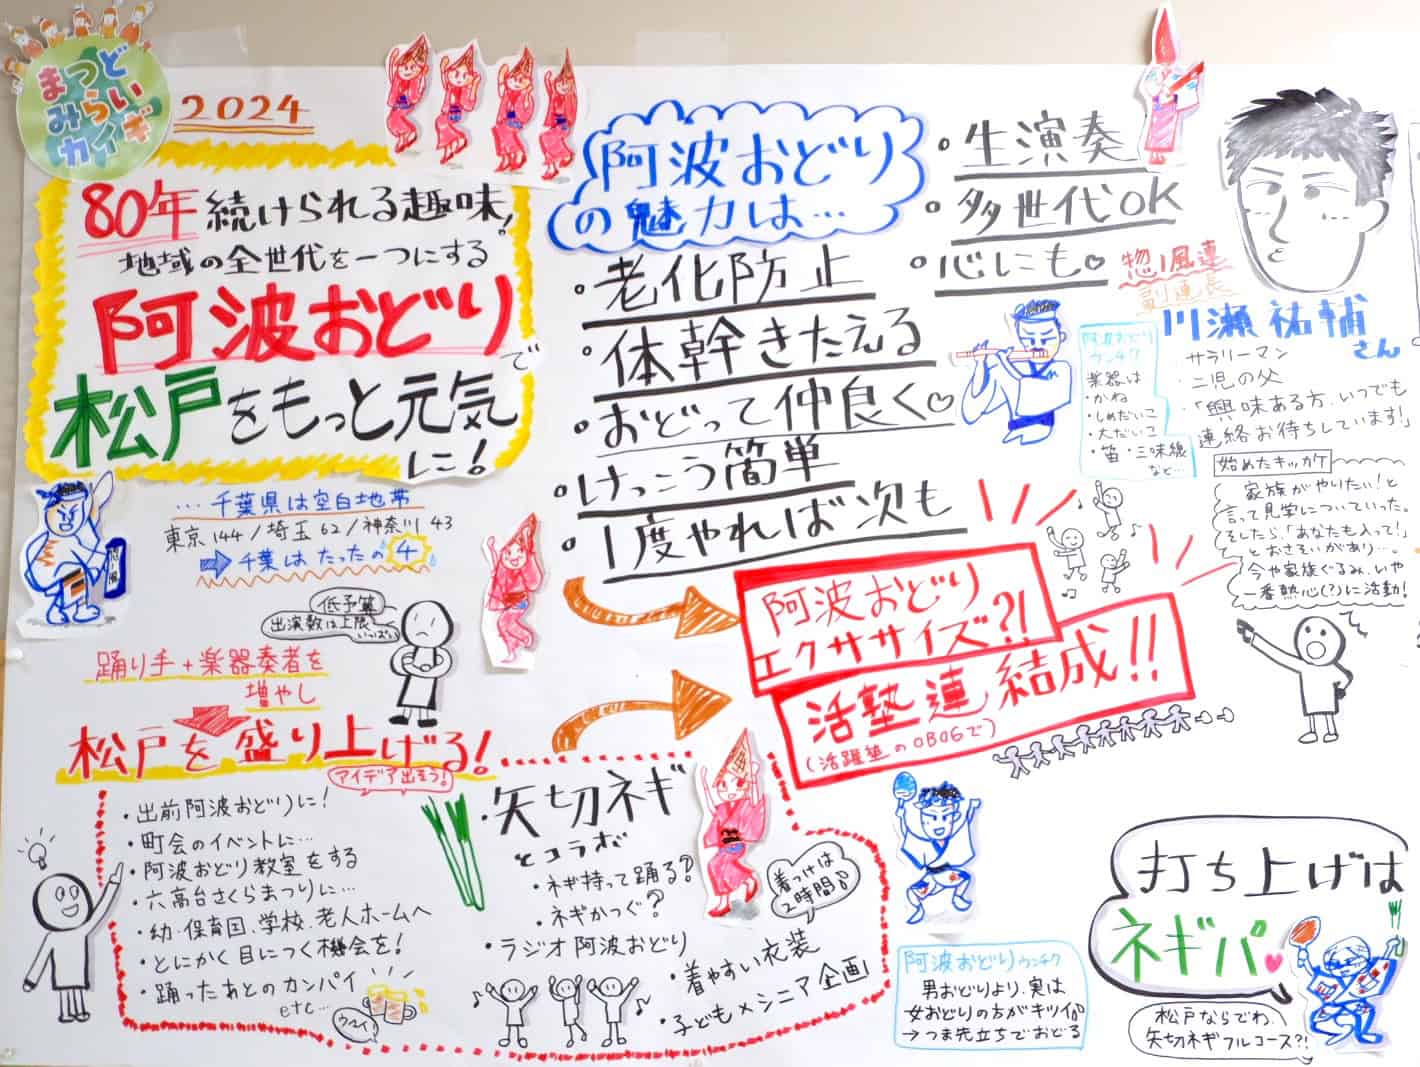 まつど
みらい
カイギ
2024
80年続けられる趣味!
地域の全世代を一つにする
阿波おどりで
松戸をもっと元気
に!
…千葉県は空白地帯
東京144/埼玉62/神奈川43
千葉はたったの4
低予算
出演数は上限
いっぱい
踊り手+楽器奏者を
増やし
松戸を盛り上げる!
アイデア出そう!
・出前阿波おどりに!
・町会のイベントに…
・阿波おどり教室をする
・六高台さくらまつりに…
・幼・保育園、学校、老人ホームへ
・とにかく目につく機会を!
・踊ったあとのカンパイ
etc…
・矢切ネギ
とコラボ
・ネギ持って踊る?
・ネギかつぐ?
・ラジオ阿波おどり
着つけは
2時間
・着やすい衣装
・子ども×シニア企画
阿波おどり
の魅力は…
・老化防止
・体幹きたえる
・おどって仲良く♡
・けっこう簡単
・1度やれば次も
・生演奏
・多世代OK
・心にも♡
阿波おどり
エクササイズ?!
活塾連結成!!
(活躍塾のOBOGで)
惣風連
副連長
川瀬祐輔
さん
・サラリーマン
・二児の父
・「興味ある方、いつでも
連絡お待ちしています!」
阿波おどり
ウンチク
楽器は
・かね
・しめだいこ
・大だいこ
・笛・三味線
など…
始めたキッカケ
家族がやりたい!と
言って見学についていった。
そしたら、「あなたも入って!」
とおさそいがあり…。
今や家族ぐるみ、いや
一番熱心(?)に活動!
阿波おどりウンチク
男おどりより、実は
女おどりの方がキツイ
→つま先立ちでおどる
打ち上げは
ネギパ♥
松戸ならでわ、
矢切ネギフルコース?!